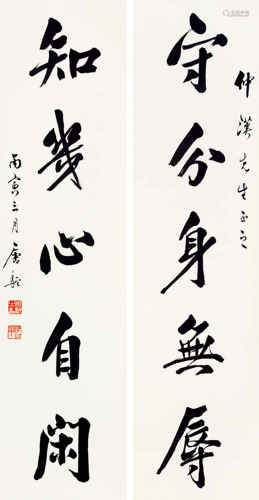 仲漢先生正之
守分身無辱
知幾心自閑
丙寅三月唐駝